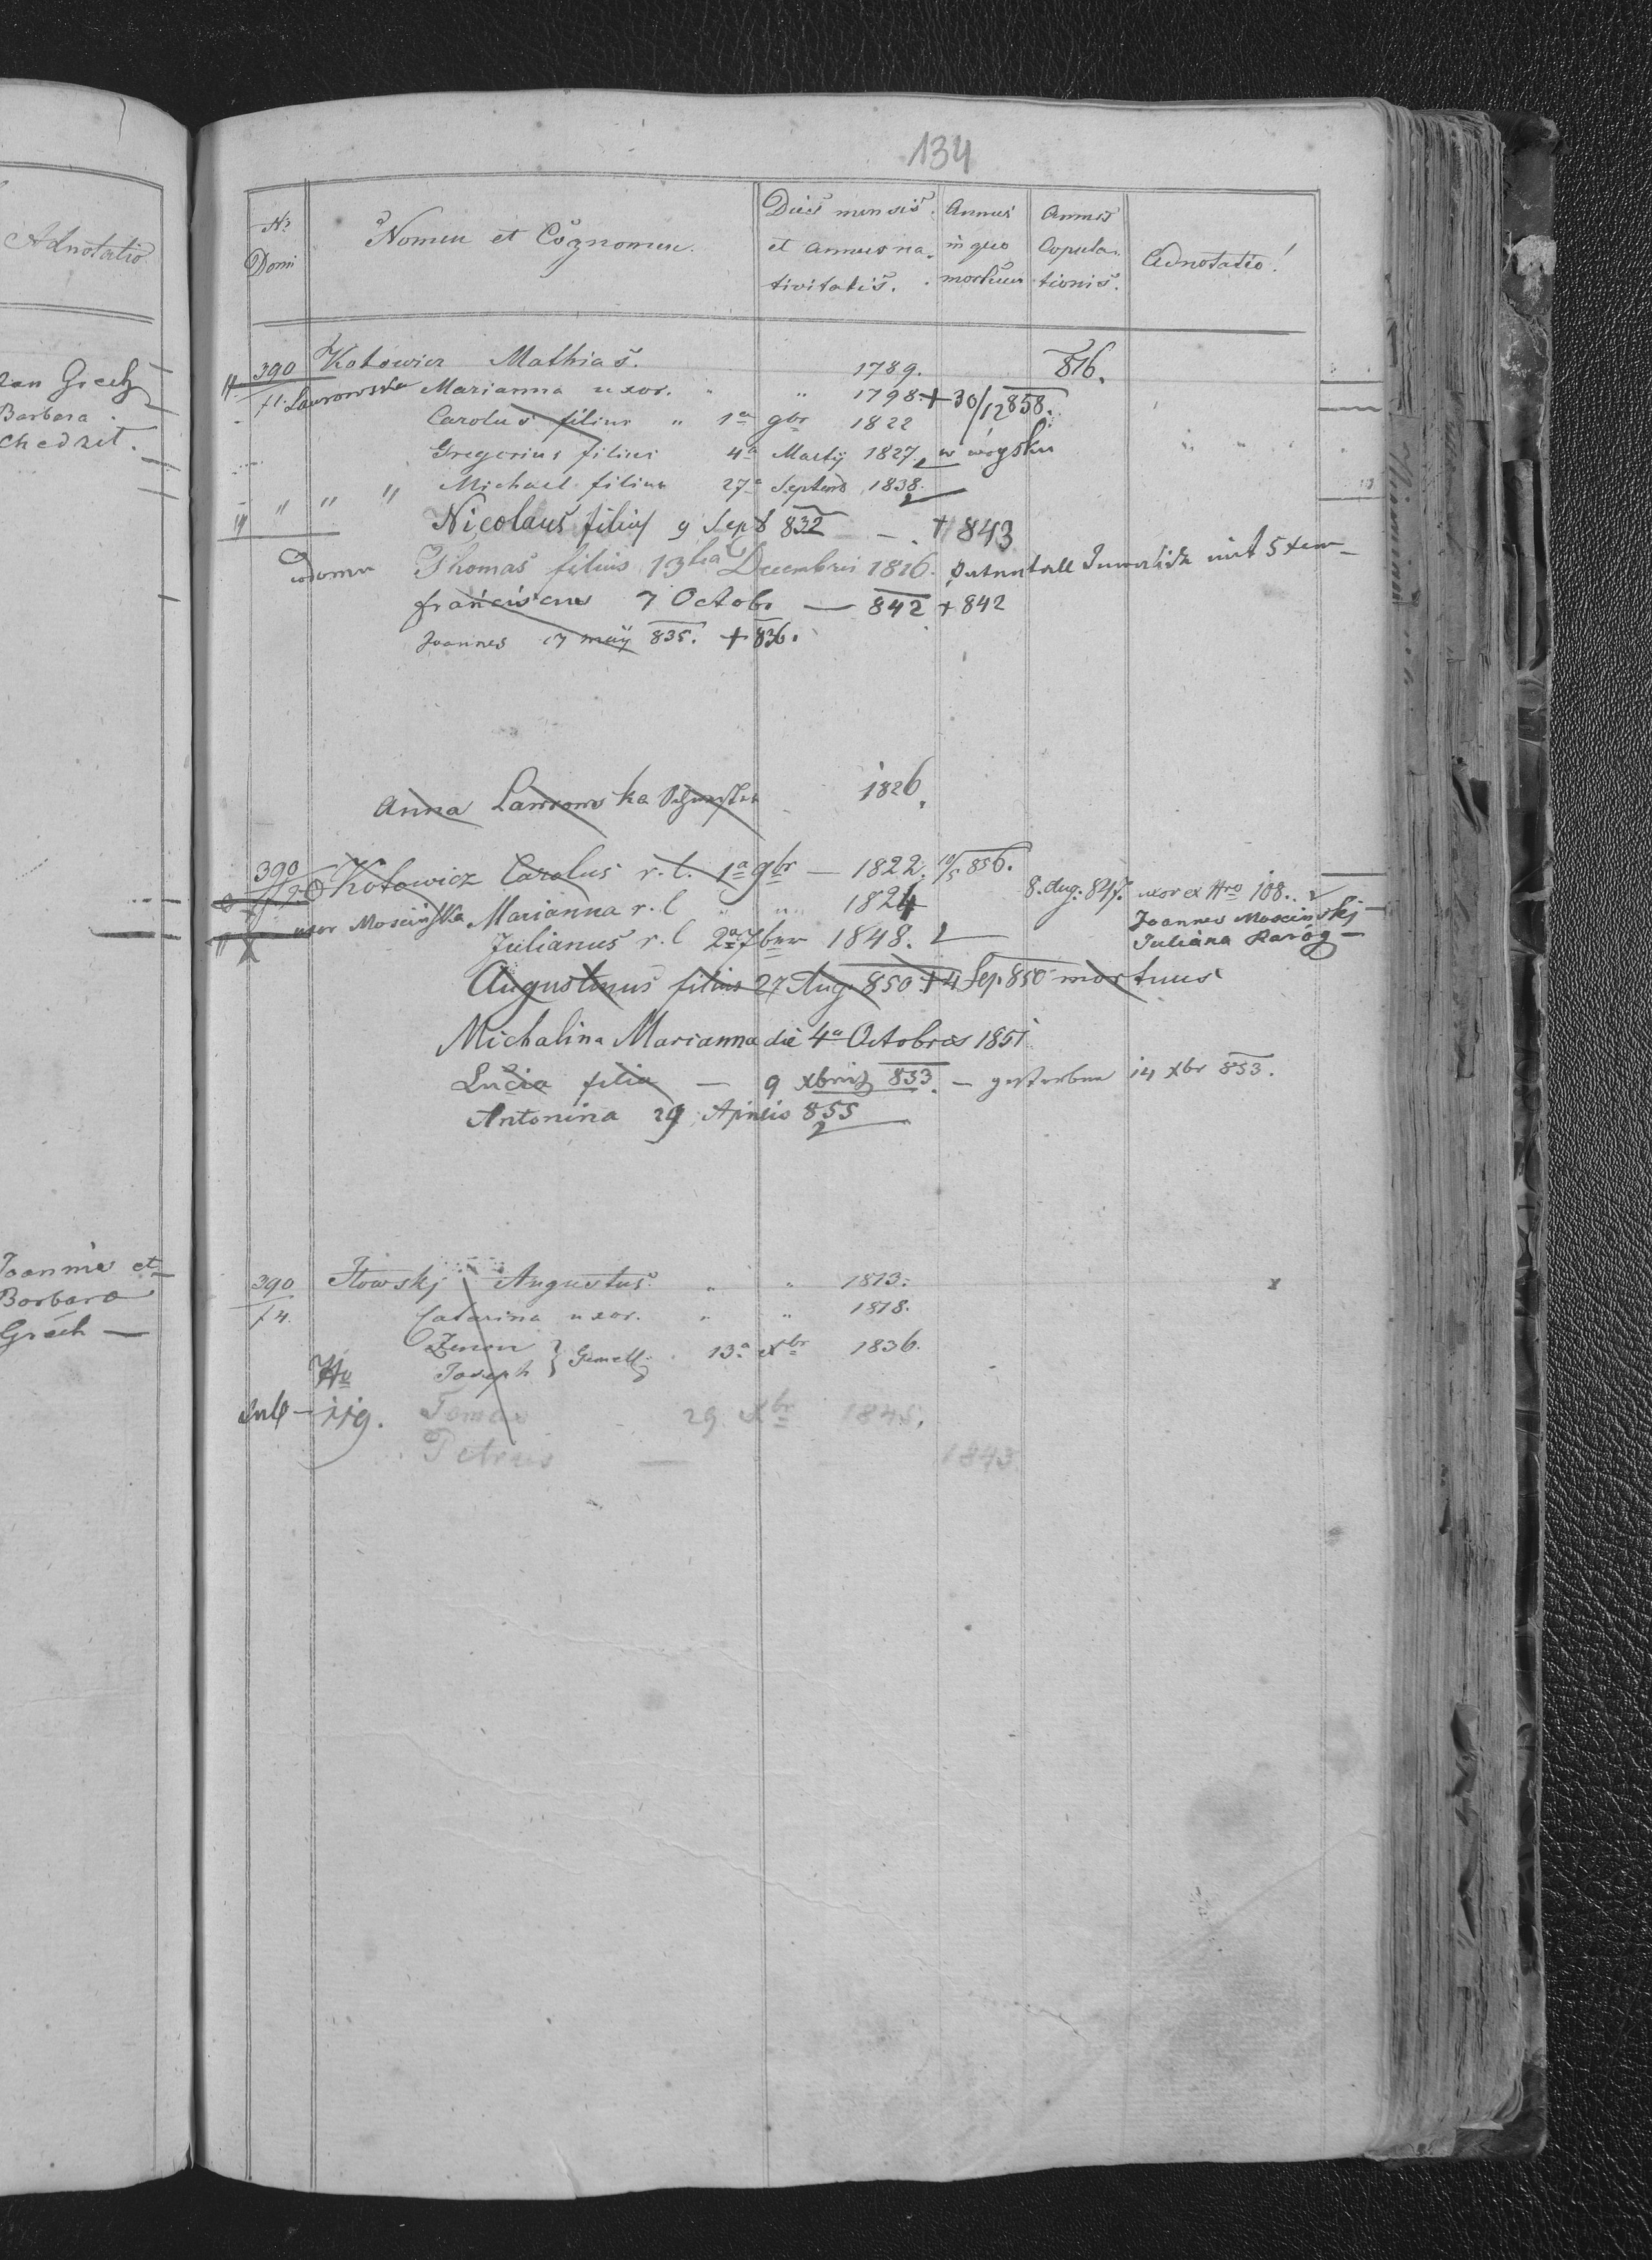 134
Adnotatio
Nọ Domi
Nomen et Cognomen.
Dies mensis et annus nativitatis.
Annus in quo mortuus
Annus Copulationis.
Adnotatio!
Grech
Barbara
390 Kotowicz Mathias. 1789. 816.
f1. Laurowska Marianna uxor. " " 1798. + 30/12 858.
Carolus filius " 1a 9br 1822
Gregorius filius 4a Martij 1827. w wojsku
" " " Michael filius 27a Septemb 1838.
Nicolaus filius 9 Sept 832 - . + 843
w domu Thomas filius 13tia Decembris 1816. mit 5 xew
franciscus 7 Octob. — 842 + 842
Joannes 17 maij 835. + 836.
Anna Lawrowska 1826.
390 Kotowicz Carolus r. l. 1a 9br — 1822. 10/5 856.
uxor Mościńska Marianna r. l " " 1824 8. Aug. 847. uxor ex Nro 108.
Joannes Mościnskj
Julianus r. l 2a 7br 1848.
Juliana Raróg —
Augustinus filius 27 Aug. 850. + 4 Sep. 850 mortuus
Michalina Marianna die 4a Octobris 1851
Lucia filia — 9 xbris 853. — gestorben 14 xbr 853.
Antonina 29 Aprilis 855
Joannis et
Barbara
Grech —
390 Iłowskj Augustus. " " 1813. x
f 4. Catarina uxor. " " 1818.
Zenon
Joseph } Gemelli 13a Xbr 1836.
Nro
Sub — 119. Tomas 29 Xbr 1845.
Petrus — 1843